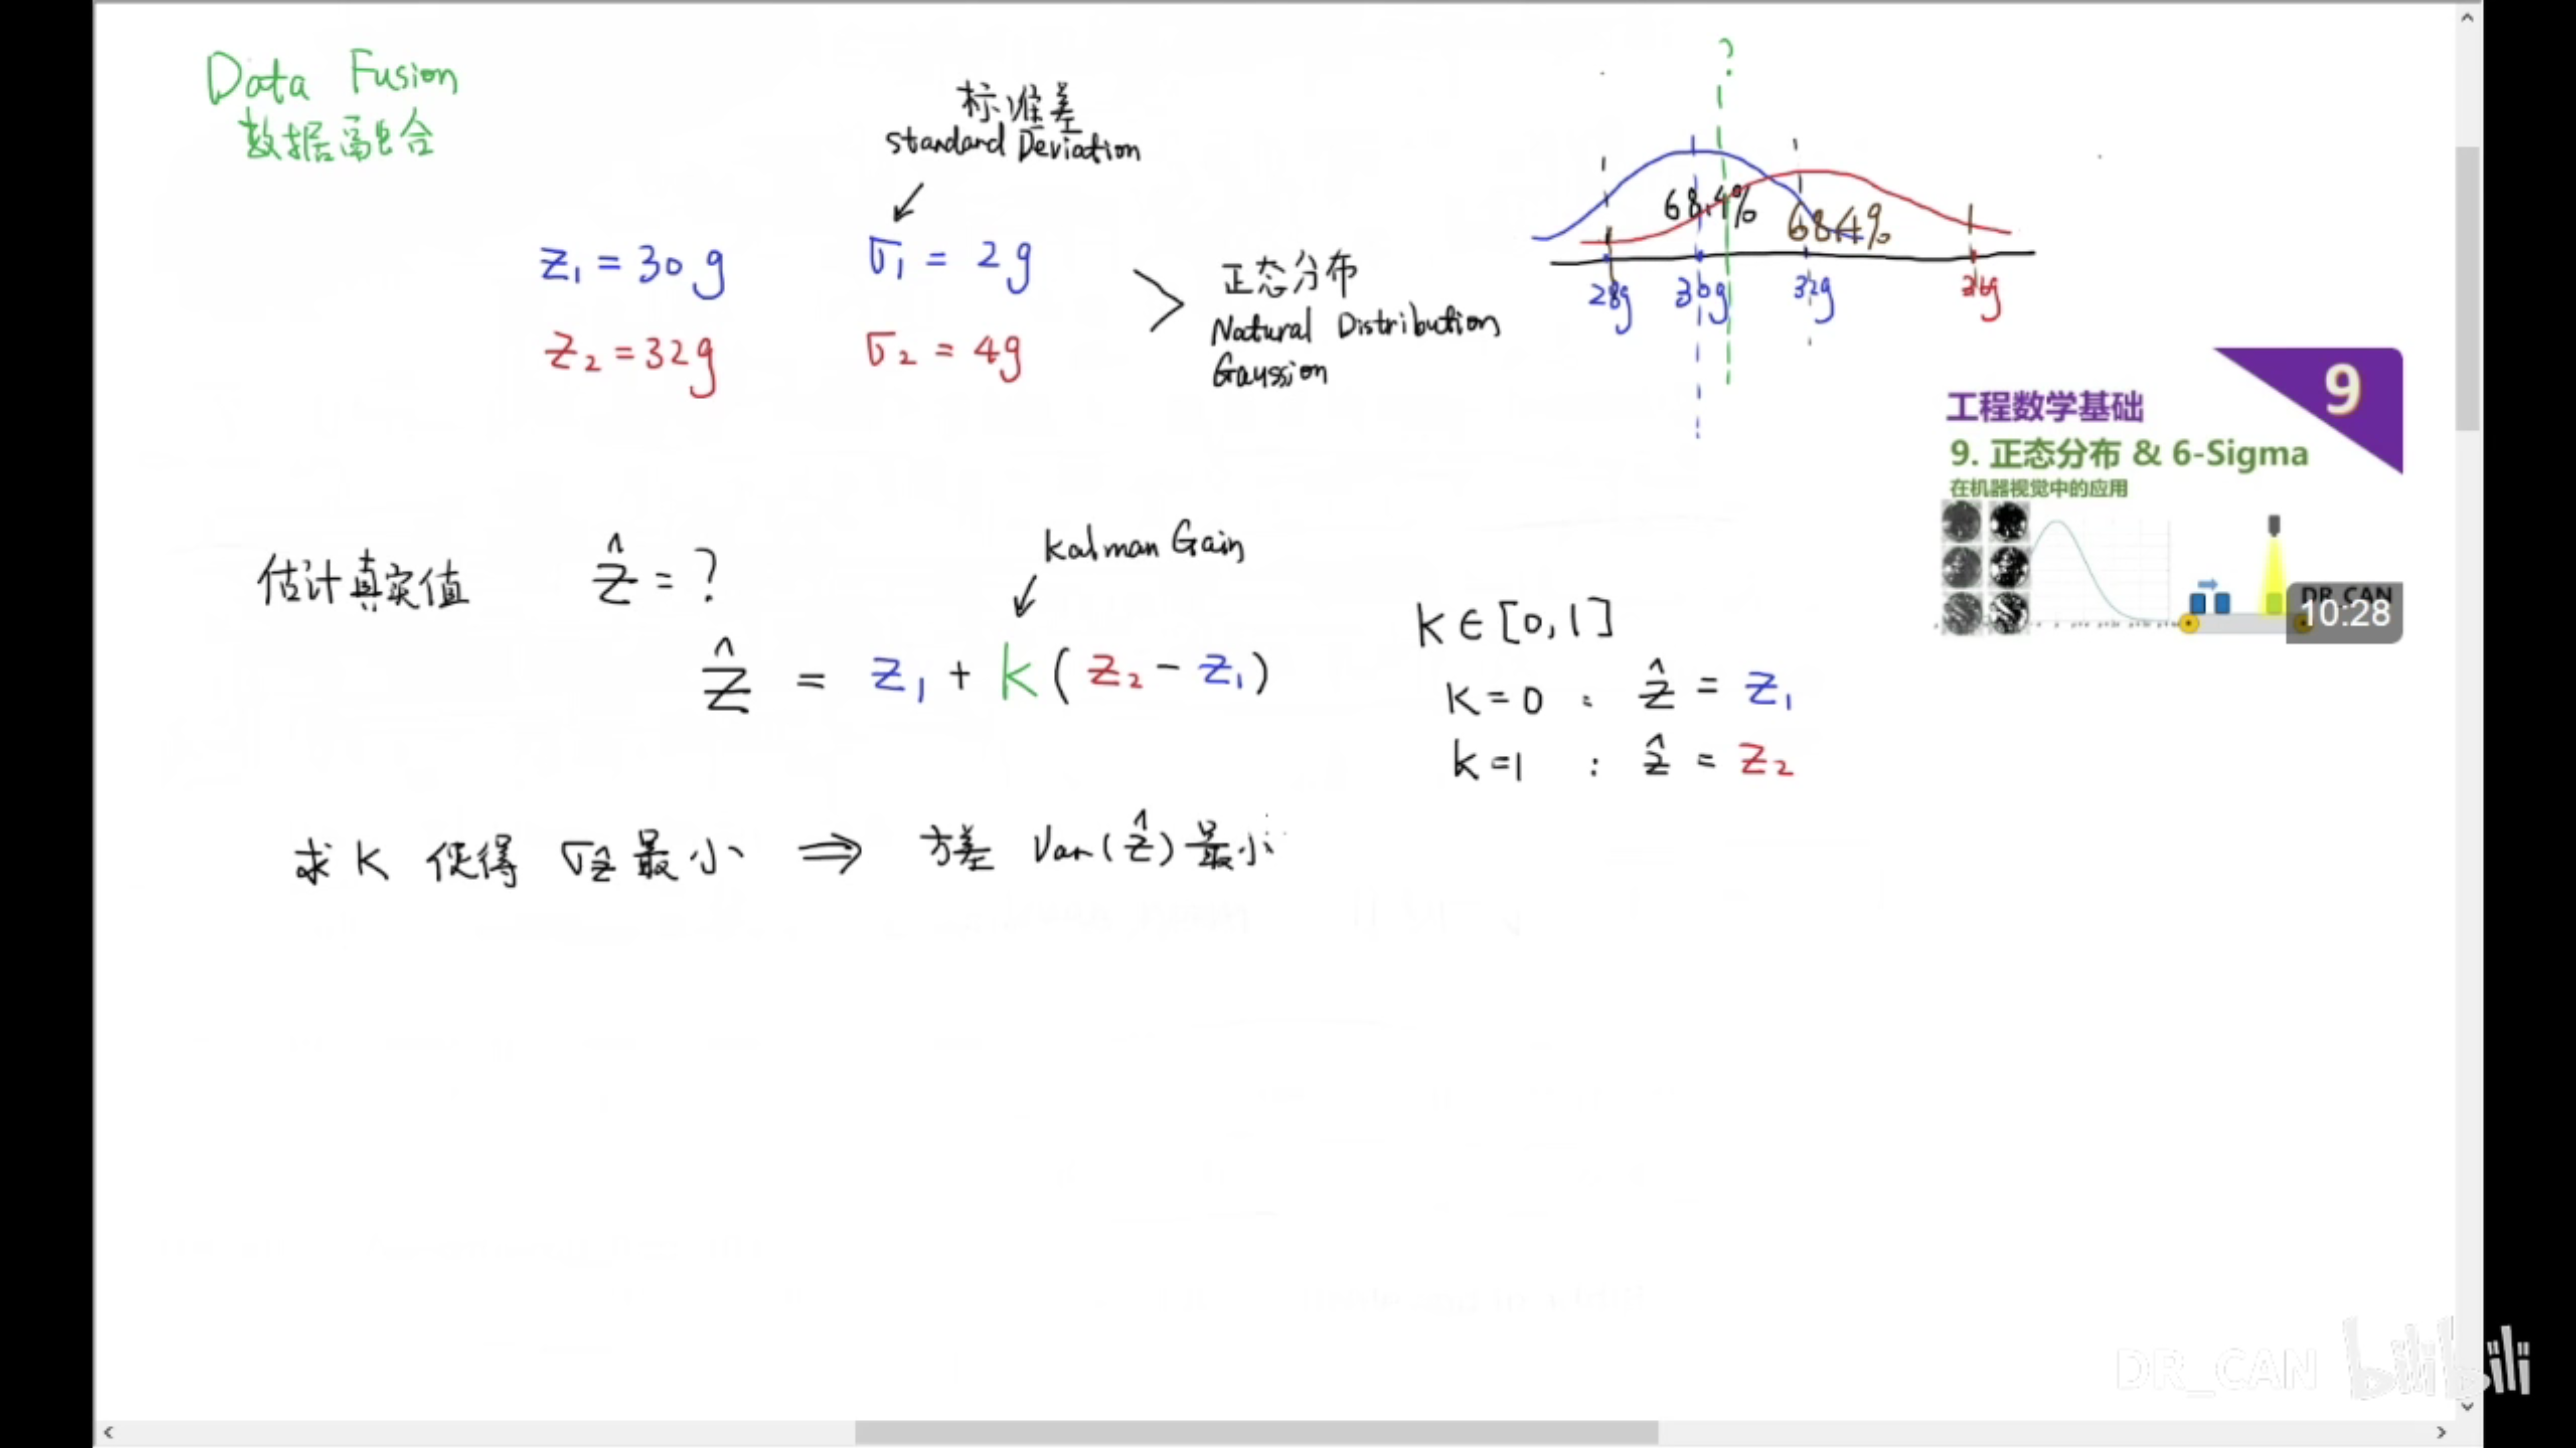 Data Fusion
数据融合
标准差
standard Deviation
z₁ = 30g
σ₁ = 2g
z₂ = 32g
σ₂ = 4g
正态分布
Natural Distribution
Gaussion
?
68.4%
68.4%
28g 30g 32g 36g
9
工程数学基础
9. 正态分布 & 6-Sigma
在机器视觉中的应用
DR_CAN
10:28
估计真实值 ẑ = ?
Kalman Gain
ẑ = z₁ + k(z₂ - z₁)
k ∈ [0,1]
k = 0 : ẑ = z₁
k = 1 : ẑ = z₂
求 k 使得 σẑ 最小 ⇒ 方差 Var(ẑ) 最小
DR_CAN bilibili